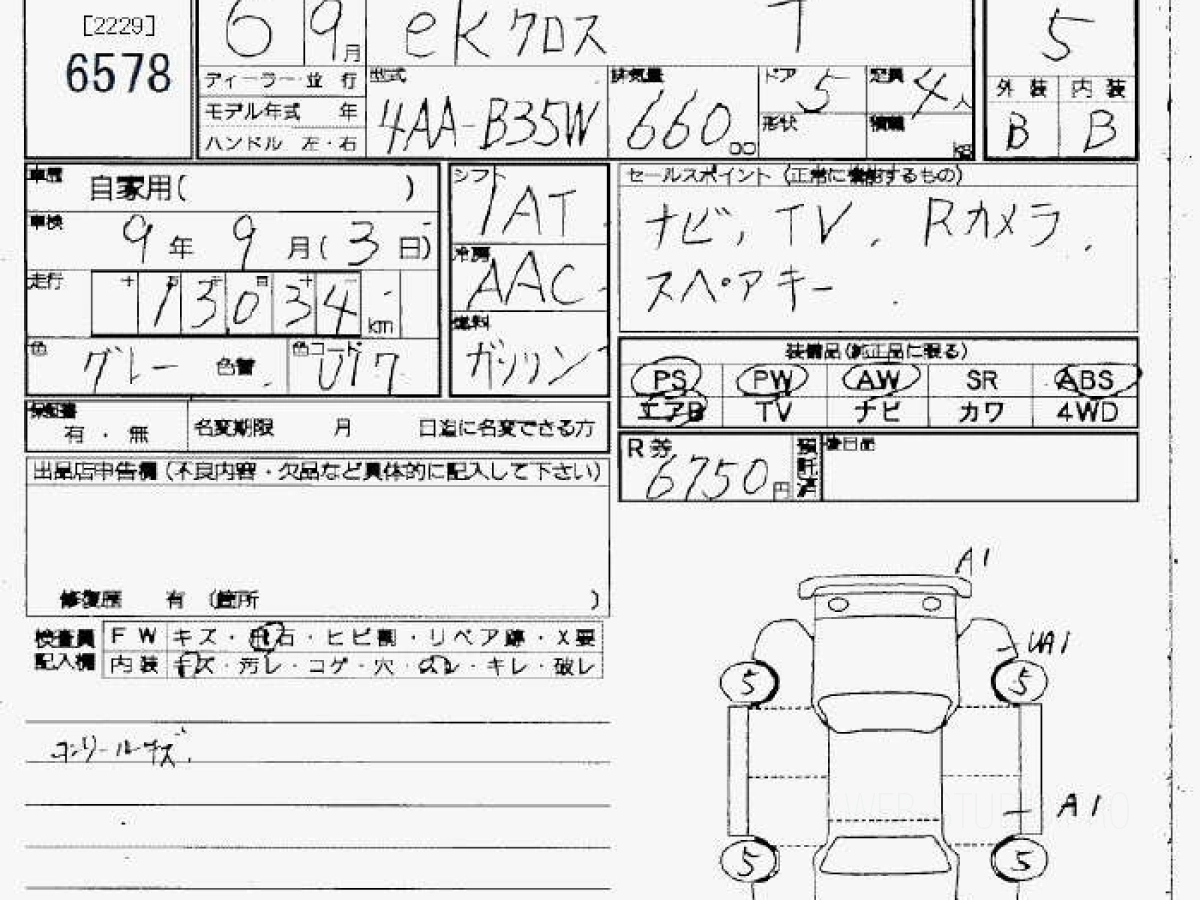 [2229]
6578
6 9月 ekクロス T 5
ディーラー・並 行
モデル年式 年
ハンドル 左・右
型式 4AA-B35W
排気量 660cc
ドア 5
定員 4人
形状
積載 kg
外装 内装
B B
車歴 自家用( )
車検 9年9月(3日)
走行 十万千百十一
13034 km
色 グレー 色替
色コード U17
シフト IAT
冷房 AAC
燃料 ガソリン
セールスポイント (正常に機能するもの)
ナビ, TV, Rカメラ,
スペアキー
装備品(純正品に限る)
PS PW AW SR ABS
エアB TV ナビ カワ 4WD
保証書 有・無
名変期限 月 日迄に名変できる方
R券 6750円 預託済
後日品
出品店申告欄(不良内容・欠品など具体的に記入して下さい)
修復歴 有 (箇所 )
検査員記入欄
FW キズ・飛石・ヒビ割・リペア跡・X要
内装 キズ・汚レ・コゲ・穴・スレ・キレ・破レ
コンソールキズ.
A1
UA1
5 5
A1
5 5